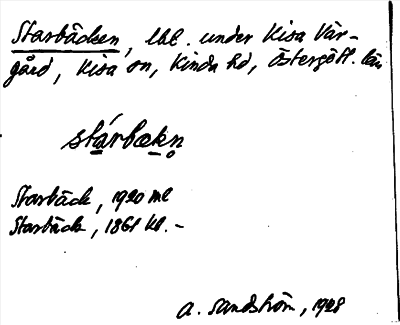 Starbäcken, lbl. under Kisa Vär-
gård, Kisa sn, Kinda hd, Östergötl. län
stárbækn̥
Starbäck, 1920 ml
Starbäck, 1861 kl. –
A. Sandström, 1928